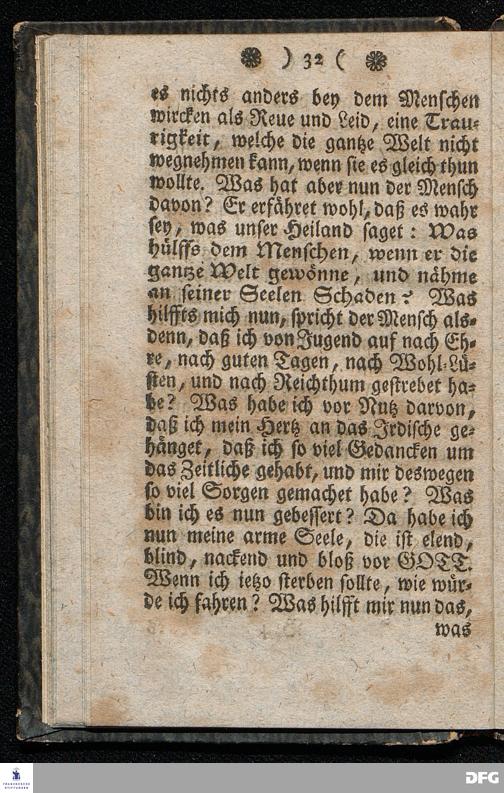 ) 32 (
es nichts anders bey dem Menschen
wircken als Reue und Leid, eine Trau-
rigkeit, welche die gantze Welt nicht
wegnehmen kann, wenn sie es gleich thun
wollte. Was hat aber nun der Mensch
davon? Er erfähret wohl, daß es wahr
sey, was unser Heiland saget: Was
hülffs dem Menschen, wenn er die
gantze Welt gewönne, und nähme
an seiner Seelen Schaden? Was
hilffts mich nun, spricht der Mensch als-
denn, daß ich von Jugend auf nach Eh-
re, nach guten Tagen, nach Wohl-Lü-
sten, und nach Reichthum gestrebet ha-
be? Was habe ich vor Nutz darvon,
daß ich mein Hertz an das Irdische ge-
hänget, daß ich so viel Gedancken um
das Zeitliche gehabt, und mir deswegen
so viel Sorgen gemachet habe? Was
bin ich es nun gebessert? Da habe ich
nun meine arme Seele, die ist elend,
blind, nackend und bloß vor GOTT.
Wenn ich ietzo sterben sollte, wie wür-
de ich fahren? Was hilfft mir nun das,
was
FRANCKESCHE
STIFTUNGEN
DFG